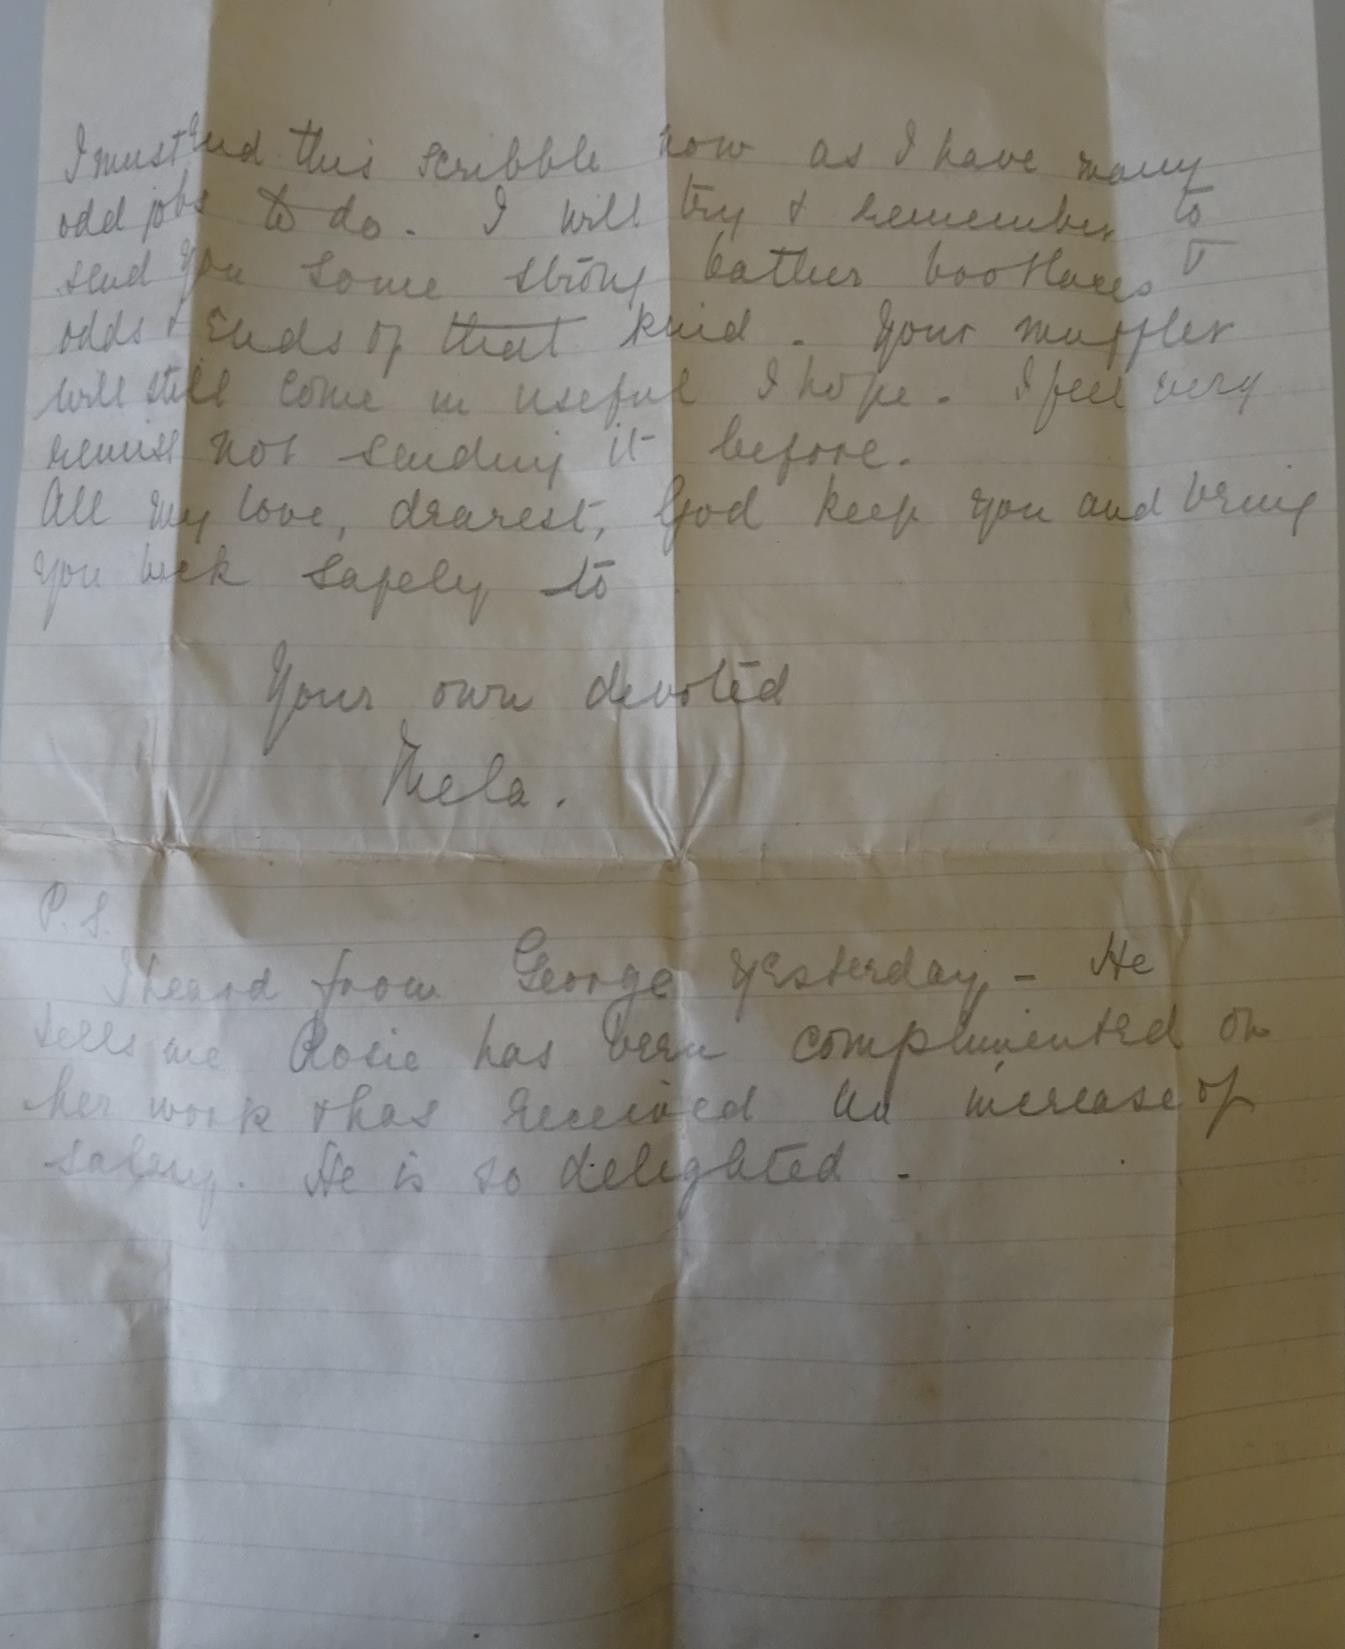 I must end this scribble now as I have many
odd jobs to do. I will try & remember to
send you some strong leather bootlaces &
odds & ends of that kind. Your muffler
will still come in useful I hope. I feel very
remiss not sending it before.
All my love, dearest, God keep you and bring
you back safely to
Your own devoted
P.S.
I heard from George yesterday, - He
tells me Rosie has been complimented on
her work & has received an increase of
salary. He is so delighted -